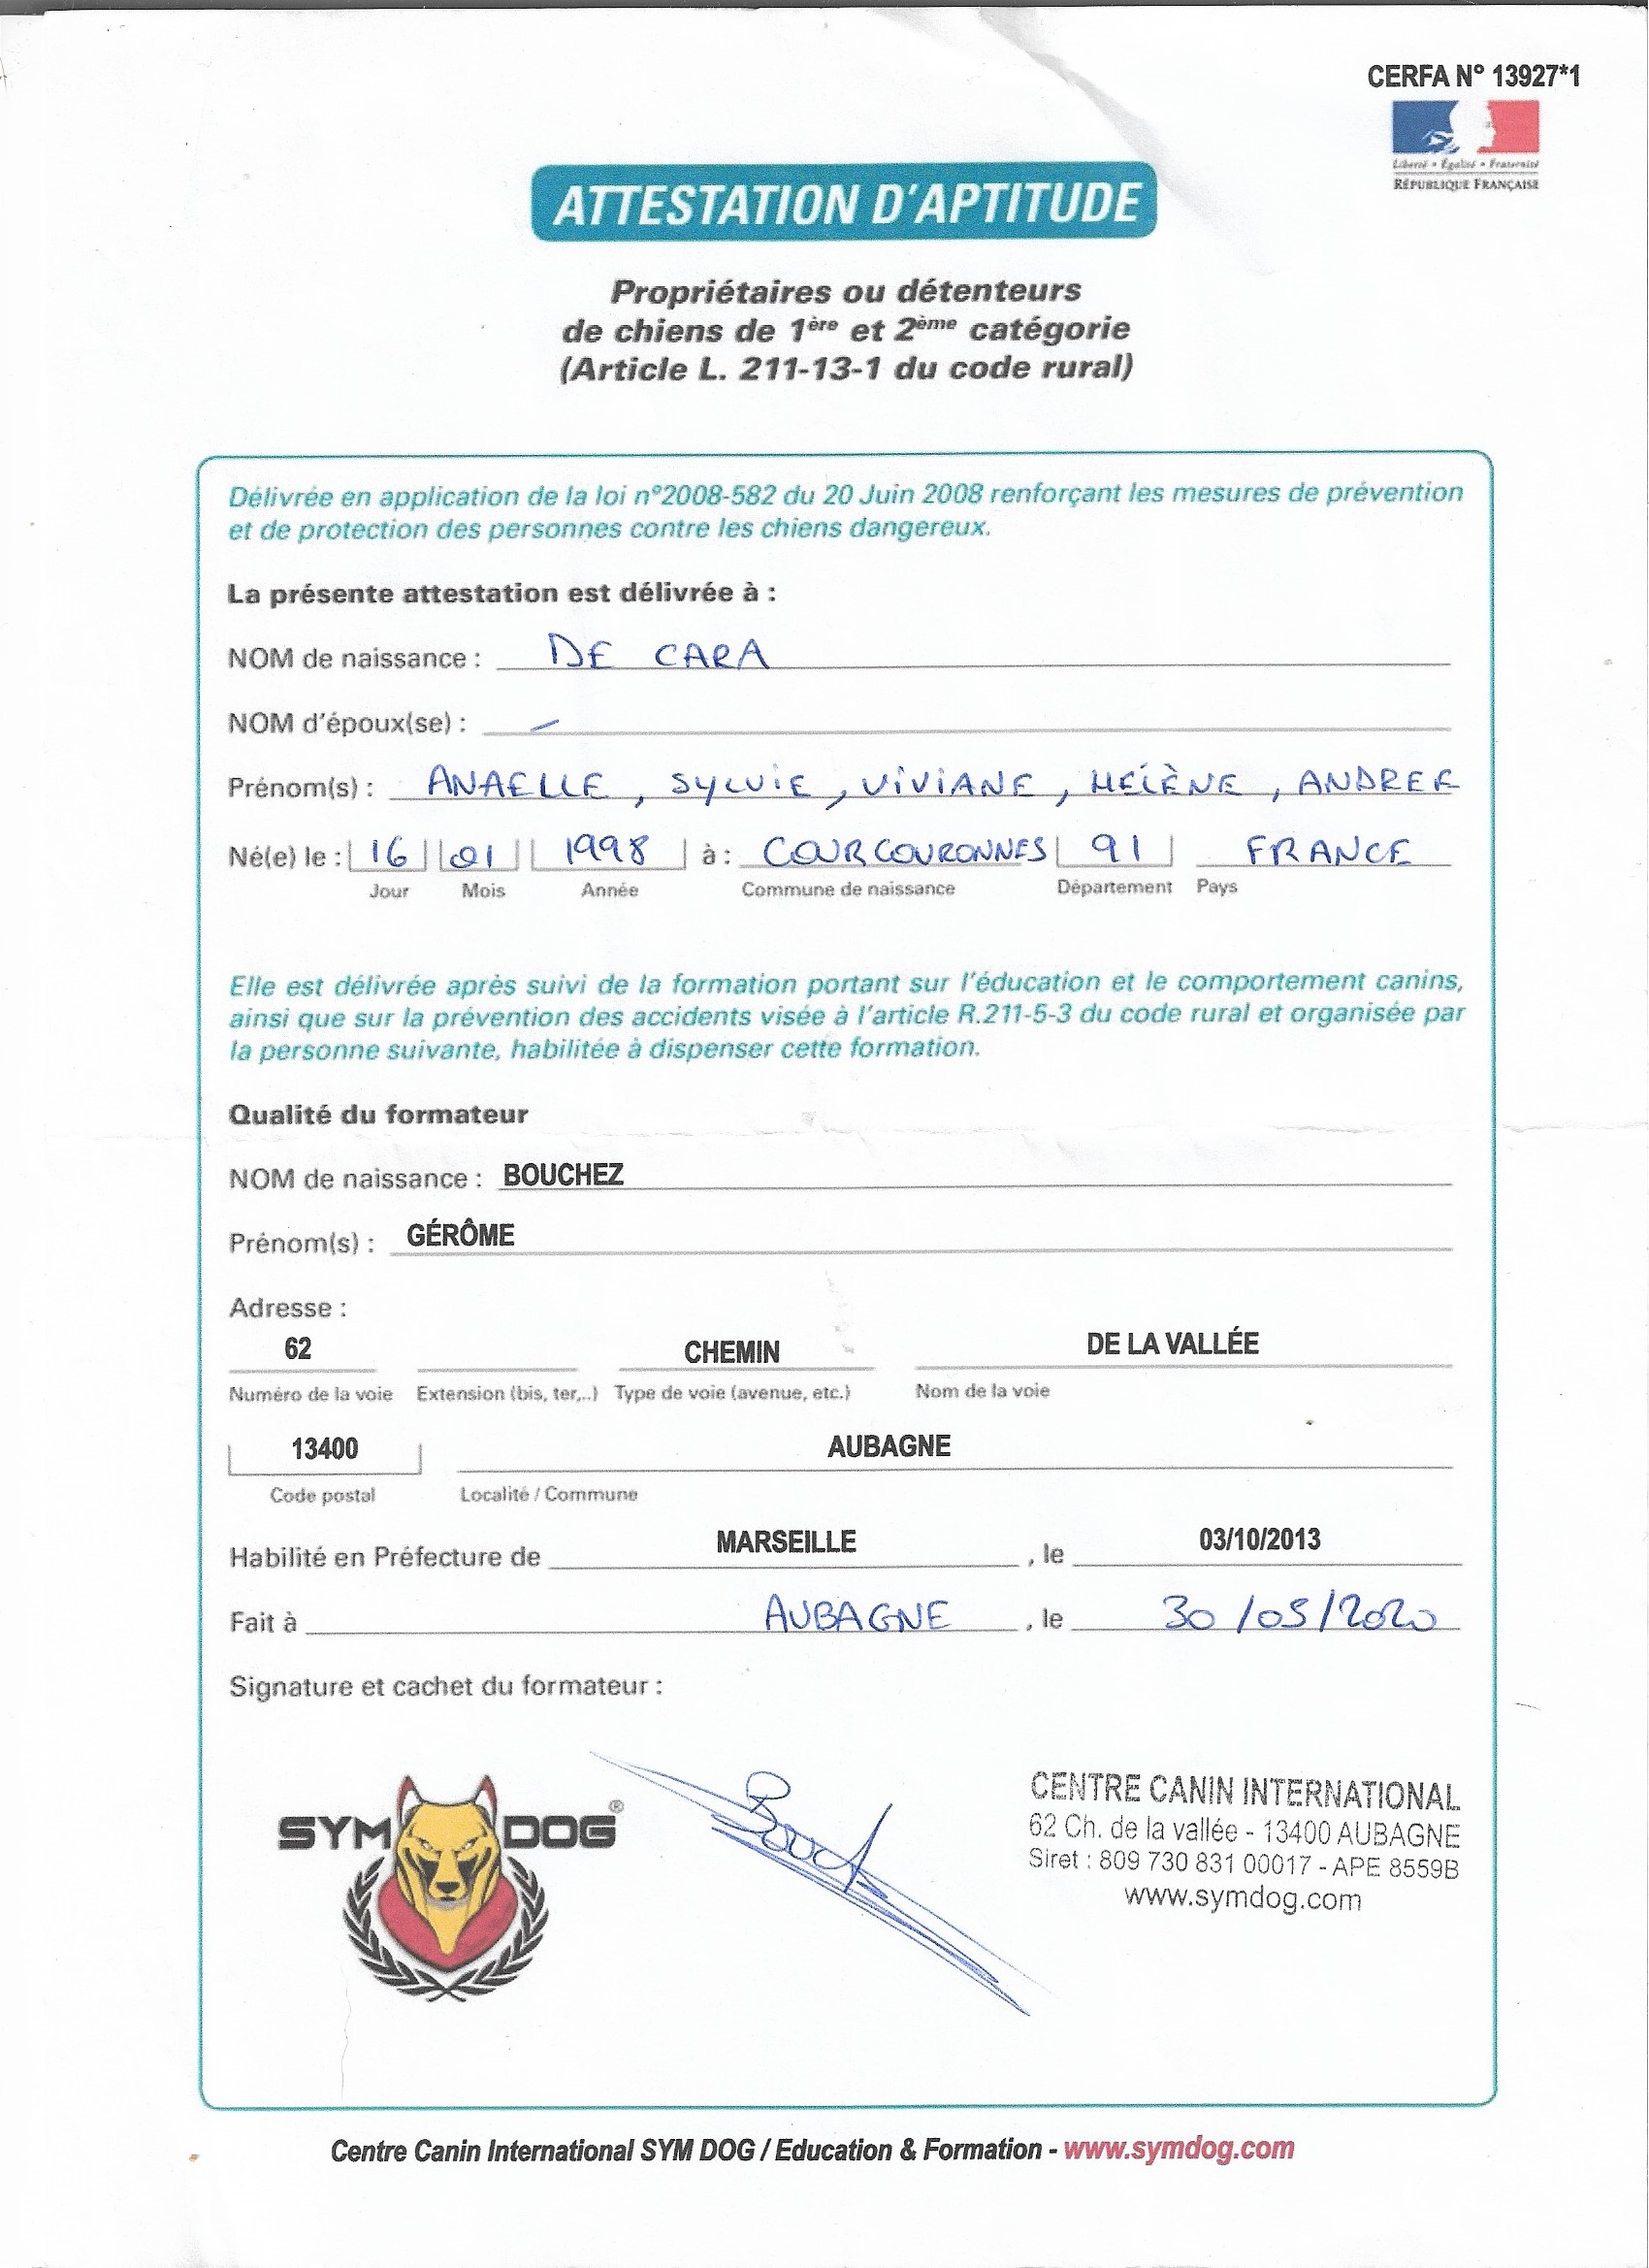 CERFA N° 13927*1
Liberté • Égalité • Fraternité
RÉPUBLIQUE FRANÇAISE
ATTESTATION D'APTITUDE
Propriétaires ou détenteurs
de chiens de 1ère et 2ème catégorie
(Article L. 211-13-1 du code rural)
Délivrée en application de la loi n°2008-582 du 20 Juin 2008 renforçant les mesures de prévention
et de protection des personnes contre les chiens dangereux.
La présente attestation est délivrée à :
NOM de naissance : DE CARA
NOM d'époux(se) : –
Prénom(s) : ANAELLE, SYLVIE, VIVIANE, HÉLÈNE, ANDREE
Né(e) le : 16 01 1998 à : COURCOURONNES 91 FRANCE
Jour Mois Année Commune de naissance Département Pays
Elle est délivrée après suivi de la formation portant sur l'éducation et le comportement canins,
ainsi que sur la prévention des accidents visée à l'article R.211-5-3 du code rural et organisée par
la personne suivante, habilitée à dispenser cette formation.
Qualité du formateur
NOM de naissance : BOUCHEZ
Prénom(s) : GÉRÔME
Adresse :
62 CHEMIN DE LA VALLÉE
Numéro de la voie Extension (bis, ter,..) Type de voie (avenue, etc.) Nom de la voie
13400 AUBAGNE
Code postal Localité / Commune
Habilité en Préfecture de MARSEILLE , le 03/10/2013
Fait à AUBAGNE , le 30/05/2020
Signature et cachet du formateur :
SYM DOG®
CENTRE CANIN INTERNATIONAL
62 Ch. de la vallée - 13400 AUBAGNE
Siret : 809 730 831 00017 - APE 8559B
www.symdog.com
Centre Canin International SYM DOG / Education & Formation - www.symdog.com